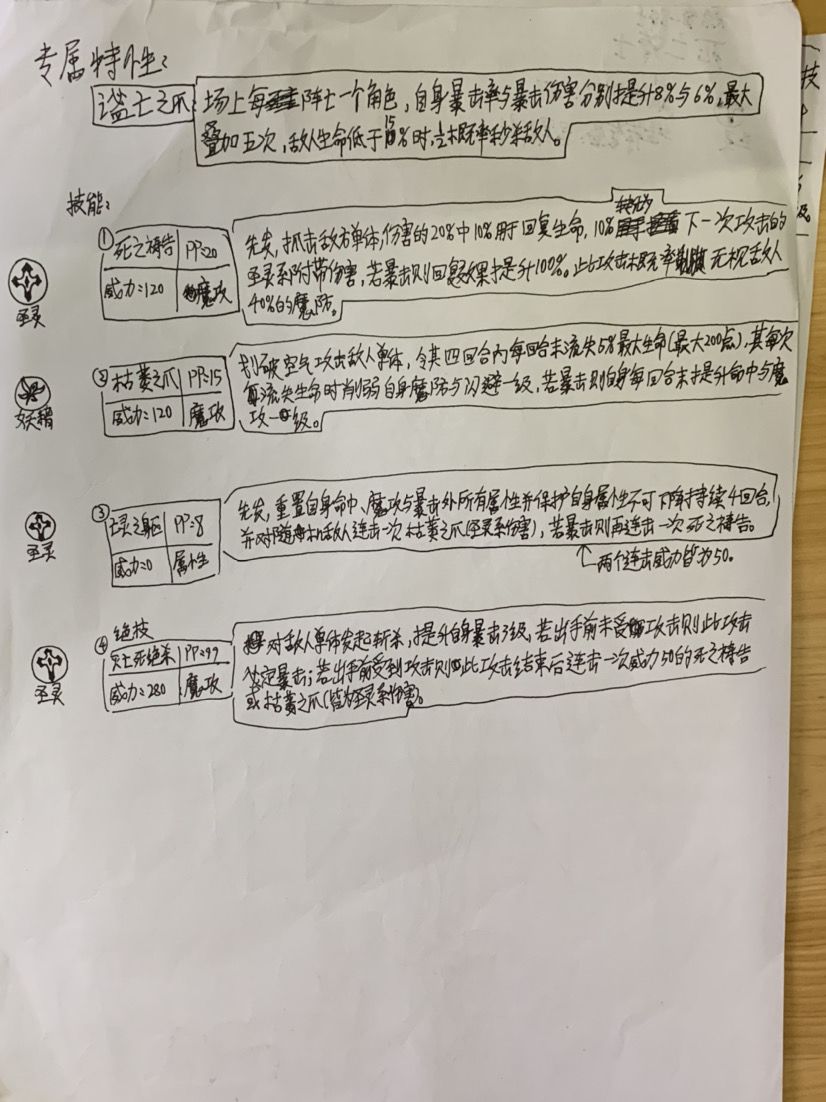 专属特性:
谥亡之爪: 场上每阵亡一个角色,自身暴击率与暴击伤害分别提升8%与6%,最大
叠加五次,敌人生命低于15%时,概率秒杀敌人。
技能:
① 死之祷告 PP:20
威力:120 魔攻
圣灵
先发,抓击敌方单体,伤害的20%中10%用于回复生命,10%转化为下一次攻击的
圣灵系附带伤害,若暴击则回复效果提升100%。此攻击概率无视敌人
40%的魔防。
② 枯萎之爪 PP:15
威力:120 魔攻
妖精
划破空气攻击敌人单体,令其四回合内每回合末流失5%最大生命(最大200点),其每次
流失生命时削弱自身魔防与闪避一级,若暴击则自身每回合末提升命中与魔
攻一级。
③ 灵之躯 PP:8
威力:0 属性
圣灵
先发,重置自身命中、魔攻与暴击外所有属性并保护自身属性不可下降持续4回合,
并对随机敌人连击一次枯萎之爪(圣灵系伤害),若暴击则再连击一次死之祷告。
两个连击威力皆为50。
④ 绝技
冥亡死绝杀 PP:99
威力:280 魔攻
圣灵
对敌人单体发起斩杀,提升自身暴击3级,若出手前未受攻击则此攻击
必定暴击;若出手前受到攻击则此攻击结束后连击一次威力50的死之祷告
或枯萎之爪(皆为圣灵系伤害)。
技
级。